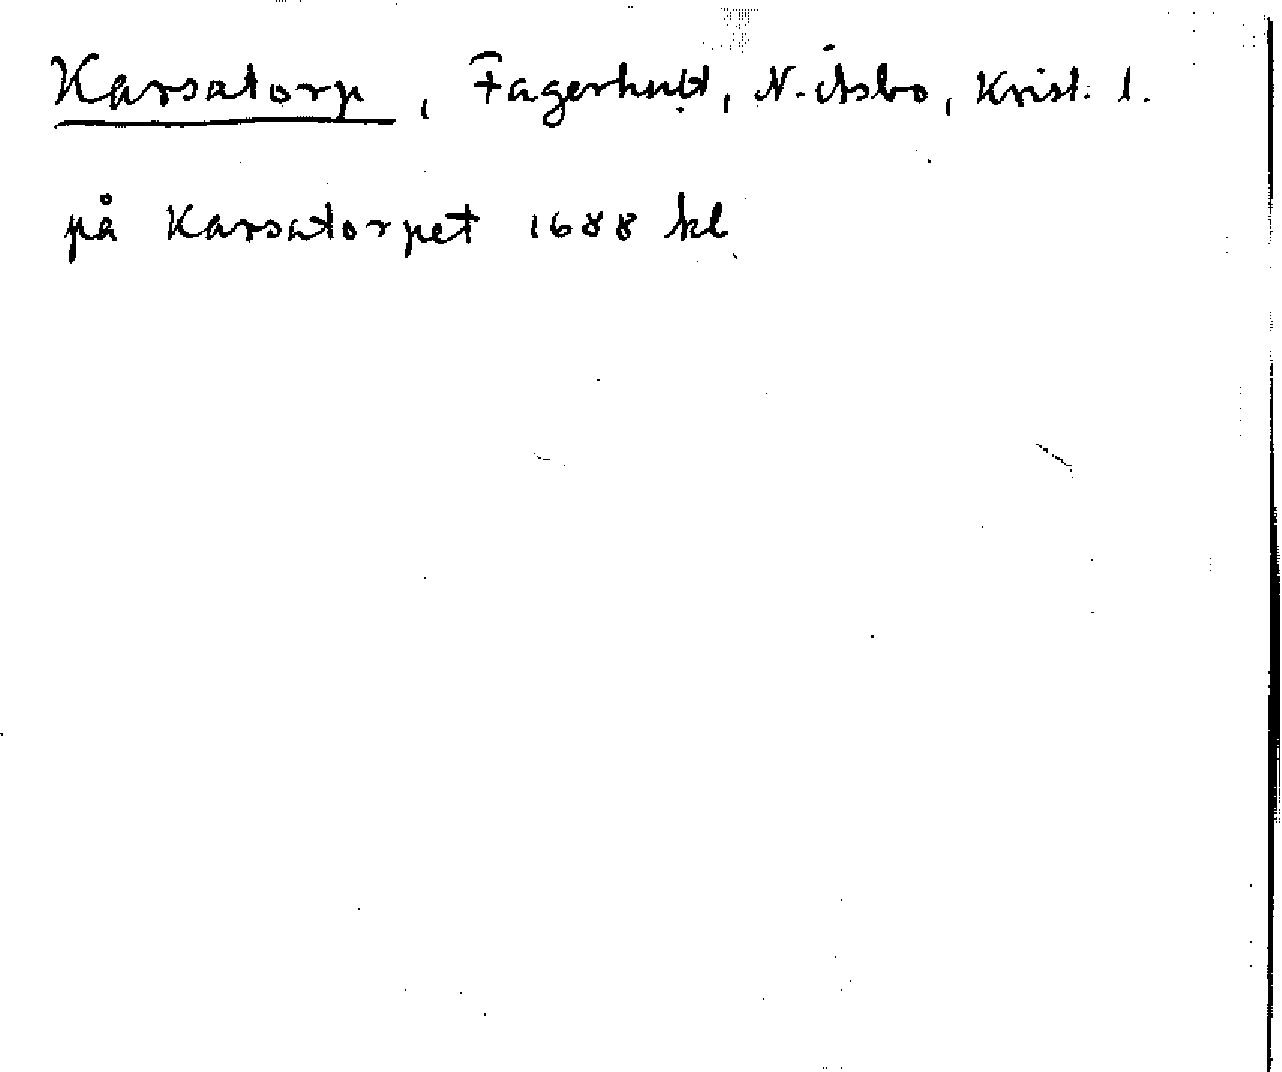 Karsatorp, Fagerhult, N. Åsbo, Krist. l.
på Karsatorpet 1688 kl